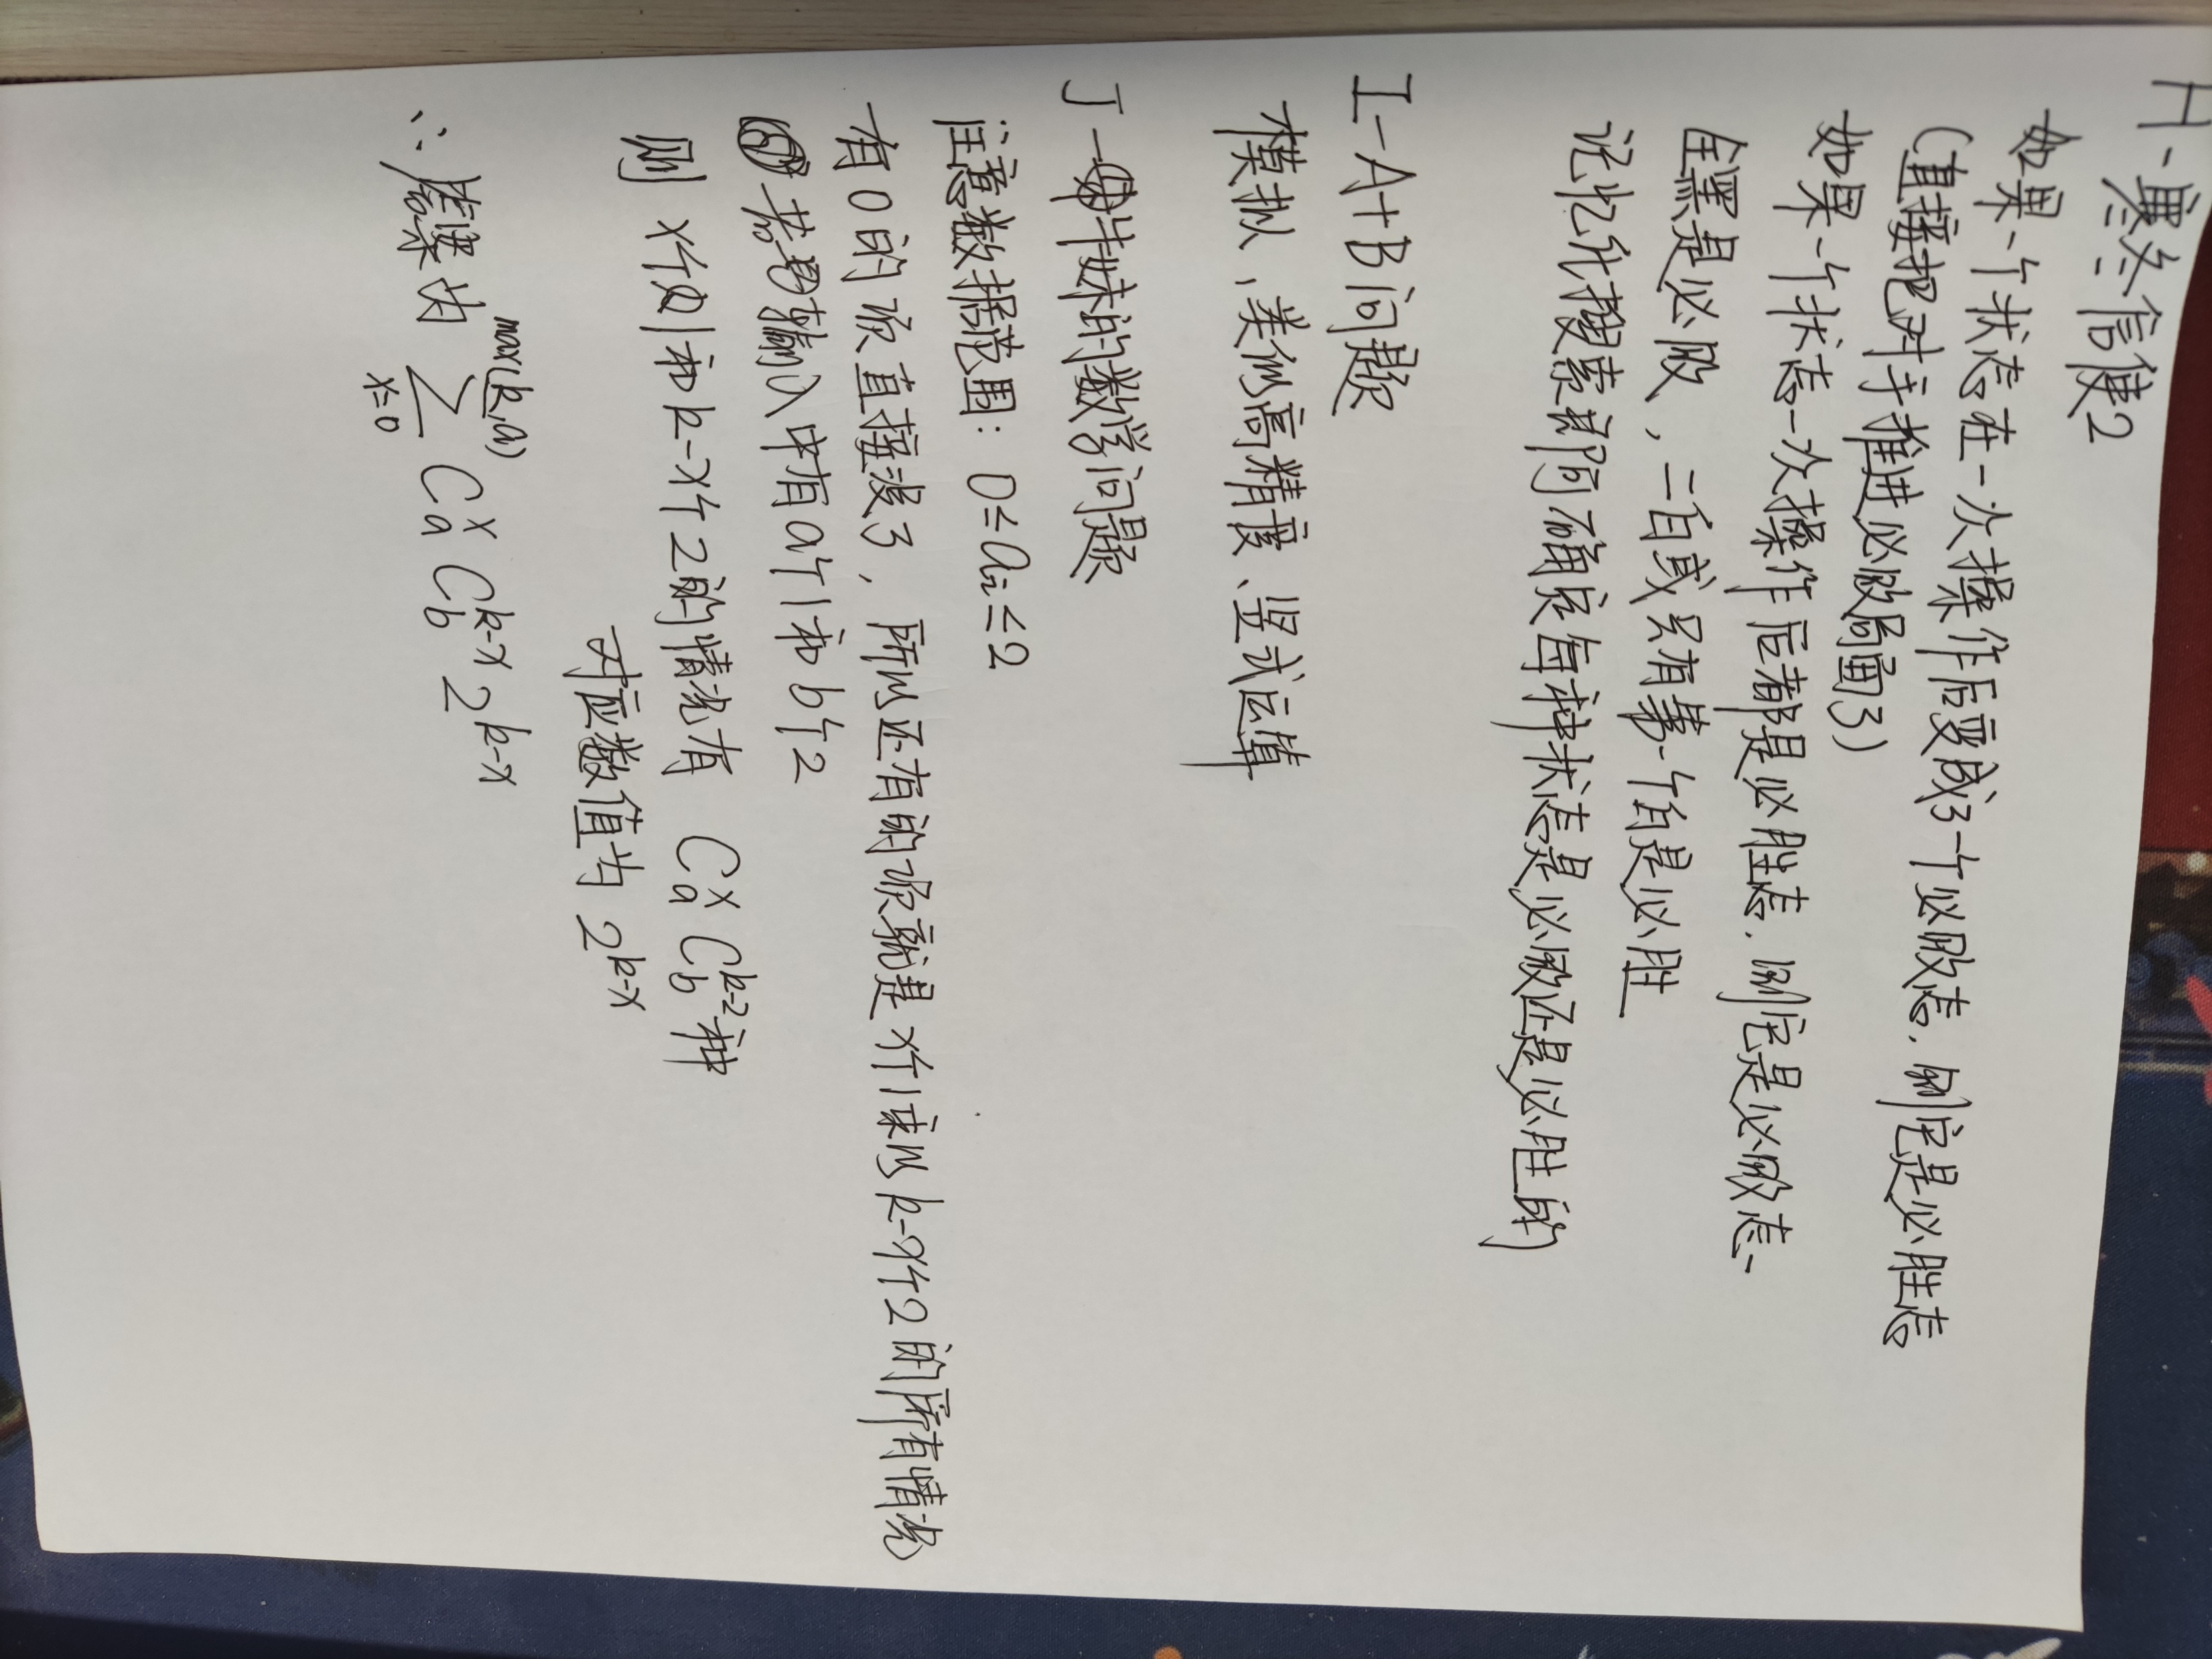 H-寒冬信使2
如果一个状态在一次操作后变成了一个必败态,则它是必胜态
(直接把对手推进必败局面了)
如果一个状态一次操作后都是必胜态,则它是必败态
全黑是必败,二白或只有第一个白是必胜
记忆化搜索即可确定每种状态是必败还是必胜的
I-A+B问题
模拟,类似高精度、竖式运算
J-牛妹的数学问题
注意数据范围: 0≤ai≤2
有0的项直接没了,所以还有的项就是x个1乘以k-x个2的所有情况
若输入中有a个1和b个2
则 x个1和k-x个2的情况有 C_a^x C_b^{k-2}种
对应数值为 2^{k-x}
∴答案为 \sum_{x=0}^{max(k,a)} C_a^x C_b^{k-x} 2^{k-x}